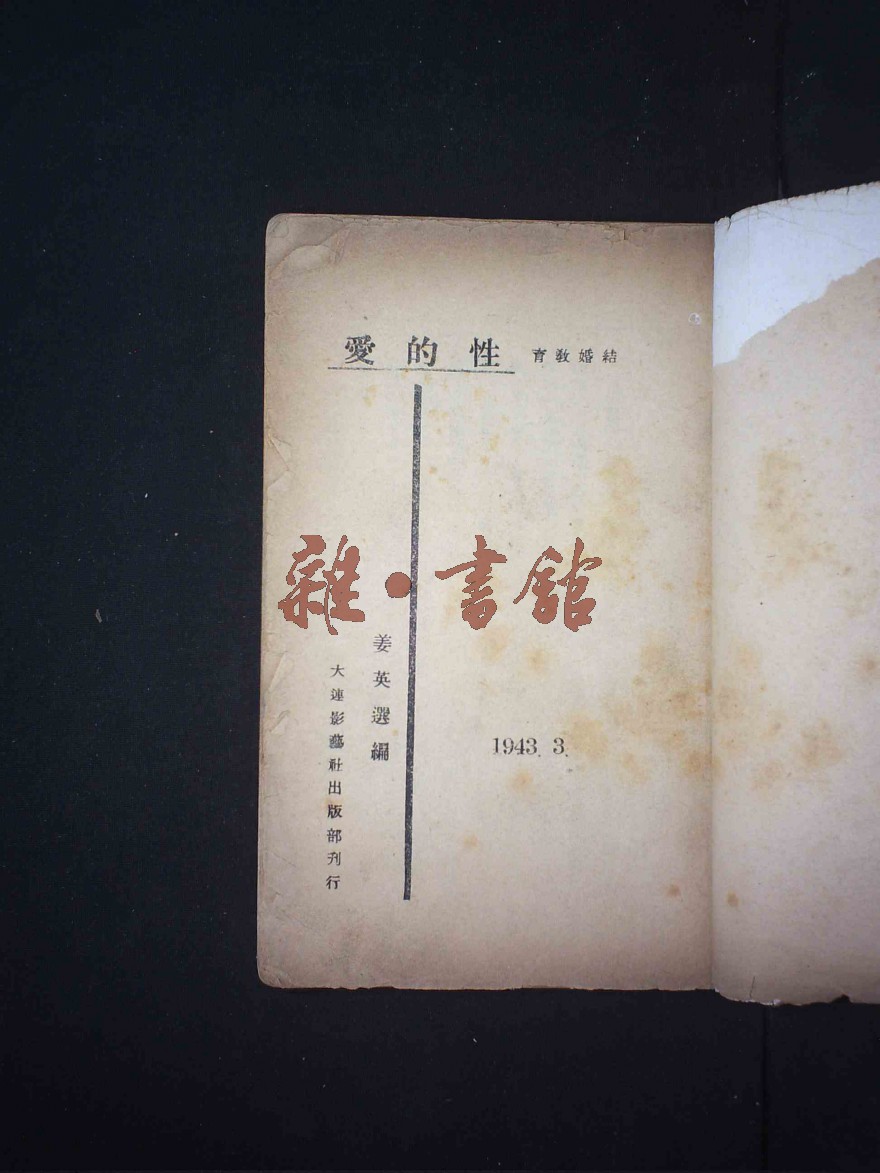 結婚教育
性的愛
姜英選編
大連影藝社出版部刊行
1943. 3.
雜·書館